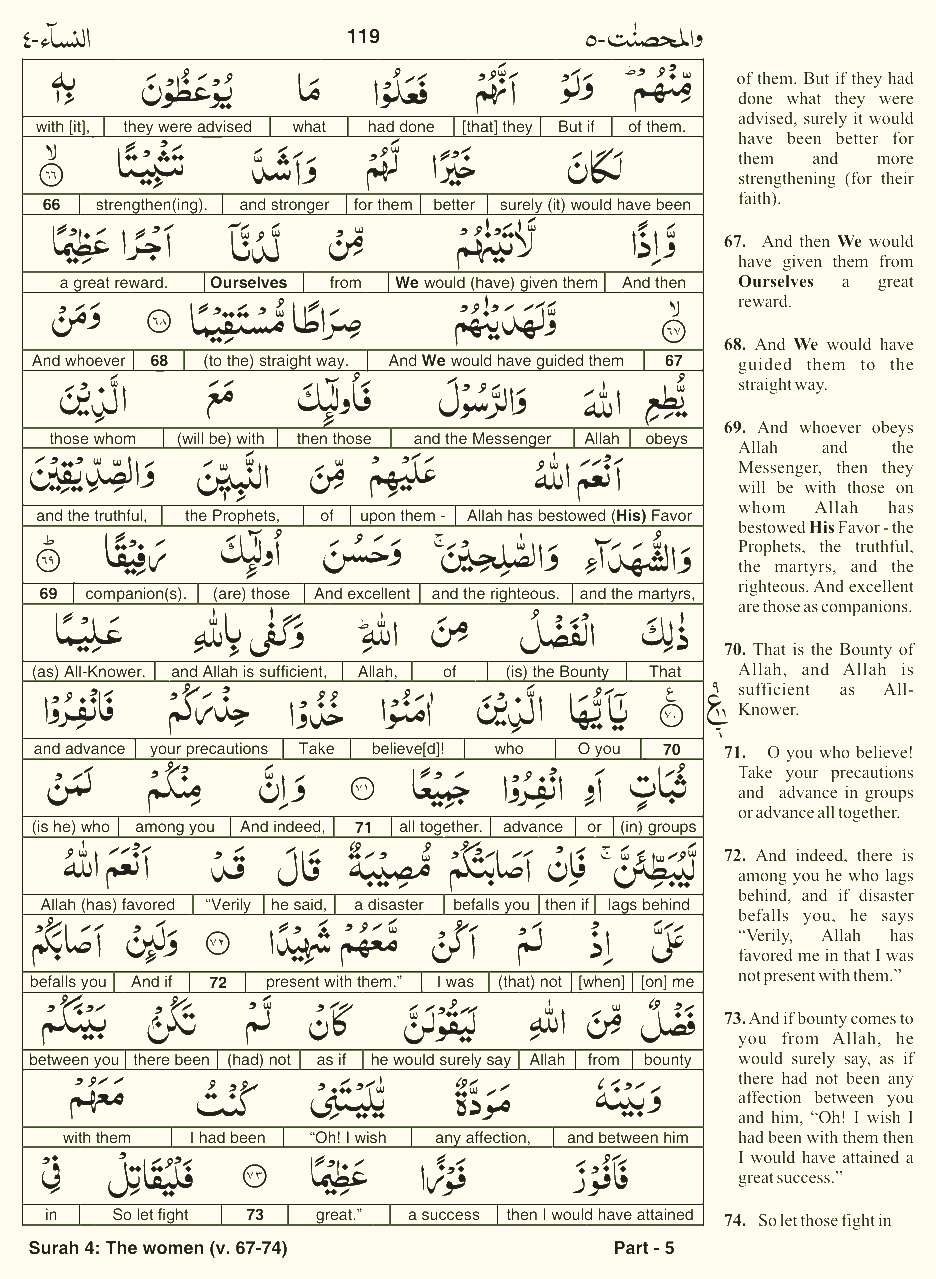 النساء-٤ 119 والمحصنت-٥
مِّنْهُمْ ؕ وَلَوْ اَنَّهُمْ فَعَلُوْا مَا يُوْعَظُوْنَ بِهٖ
of them. | But if | [that] they | had done | what | they were advised | with [it],
لَكَانَ خَيْرًا لَّهُمْ وَاَشَدَّ تَثْبِيْتًا ۙ﴿٦٦﴾
surely (it) would have been | better | for them | and stronger | strengthen(ing). | 66
وَّاِذًا لَّاٰتَيْنٰهُمْ مِّنْ لَّدُنَّاۤ اَجْرًا عَظِيْمًا
And then | We would (have) given them | from | Ourselves | a great reward.
ۙ﴿٦٧﴾ وَّلَهَدَيْنٰهُمْ صِرَاطًا مُّسْتَقِيْمًا ﴿٦٨﴾ وَمَنْ
67 | And We would have guided them | (to the) straight way. | 68 | And whoever
يُّطِعِ اللّٰهَ وَالرَّسُوْلَ فَاُولٰٓئِكَ مَعَ الَّذِيْنَ
obeys | Allah | and the Messenger | then those | (will be) with | those whom
اَنْعَمَ اللّٰهُ عَلَيْهِمْ مِّنَ النَّبِيّٖنَ وَالصِّدِّيْقِيْنَ
Allah has bestowed (His) Favor | upon them - | of | the Prophets, | and the truthful,
وَالشُّهَدَآءِ وَالصّٰلِحِيْنَ ۚ وَحَسُنَ اُولٰٓئِكَ رَفِيْقًا ؕ﴿٦٩﴾
and the martyrs, | and the righteous. | And excellent | (are) those | companion(s). | 69
ذٰلِكَ الْفَضْلُ مِنَ اللّٰهِ ؕ وَكَفٰى بِاللّٰهِ عَلِيْمًا
That | (is) the Bounty | of | Allah, | and Allah is sufficient, | (as) All-Knower.
﴿٧٠﴾ ع يٰۤاَيُّهَا الَّذِيْنَ اٰمَنُوْا خُذُوْا حِذْرَكُمْ فَانْفِرُوْا
70 | O you | who | believe[d]! | Take | your precautions | and advance
ثُبَاتٍ اَوِ انْفِرُوْا جَمِيْعًا ﴿٧١﴾ وَاِنَّ مِنْكُمْ لَمَنْ
(in) groups | or | advance | all together. | 71 | And indeed, | among you | (is he) who
لَّيُبَطِّئَنَّ ۚ فَاِنْ اَصَابَتْكُمْ مُّصِيْبَةٌ قَالَ قَدْ اَنْعَمَ اللّٰهُ
lags behind | then if | befalls you | a disaster | he said, | “Verily | Allah (has) favored
عَلَيَّ اِذْ لَمْ اَكُنْ مَّعَهُمْ شَهِيْدًا ﴿٧٢﴾ وَلَئِنْ اَصَابَكُمْ
[on] me | [when] | (that) not | I was | present with them.” | 72 | And if | befalls you
فَضْلٌ مِّنَ اللّٰهِ لَيَقُوْلَنَّ كَاَنْ لَّمْ تَكُنْۢ بَيْنَكُمْ
bounty | from | Allah | he would surely say | as if | (had) not | there been | between you
وَبَيْنَهٗ مَوَدَّةٌ يّٰلَيْتَنِيْ كُنْتُ مَعَهُمْ
and between him | any affection, | “Oh! I wish | I had been | with them
فَاَفُوْزَ فَوْزًا عَظِيْمًا ﴿٧٣﴾ فَلْيُقَاتِلْ فِيْ
then I would have attained | a success | great.” | 73 | So let fight | in
of them. But if they had
done what they were
advised, surely it would
have been better for
them and more
strengthening (for their
faith).
67. And then We would
have given them from
Ourselves a great
reward.
68. And We would have
guided them to the
straight way.
69. And whoever obeys
Allah and the
Messenger, then they
will be with those on
whom Allah has
bestowed His Favor - the
Prophets, the truthful,
the martyrs, and the
righteous. And excellent
are those as companions.
70. That is the Bounty of
Allah, and Allah is
sufficient as All-
Knower.
71. O you who believe!
Take your precautions
and advance in groups
or advance all together.
72. And indeed, there is
among you he who lags
behind, and if disaster
befalls you, he says
“Verily, Allah has
favored me in that I was
not present with them.”
73. And if bounty comes to
you from Allah, he
would surely say, as if
there had not been any
affection between you
and him, “Oh! I wish I
had been with them then
I would have attained a
great success.”
74. So let those fight in
Surah 4: The women (v. 67-74) Part - 5